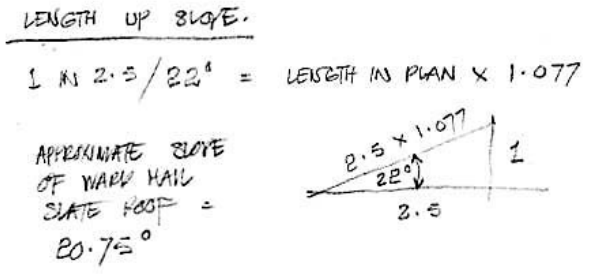 LENGTH UP SLOPE.
1 IN 2.5/22° = LENGTH IN PLAN X 1.077
APPROXIMATE SLOPE
OF WARD HALL
SLATE ROOF =
20.75°
2.5 X 1.077
22°
1
2.5